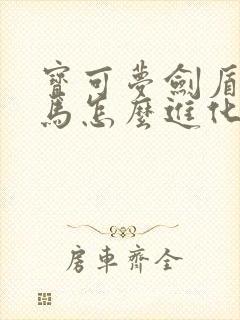 寶可夢劍盾
馬怎麼進化
房車齊全